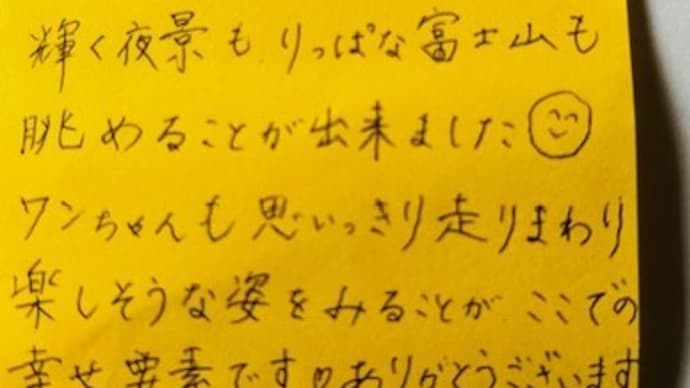 輝く夜景も りっぱな富士山も
眺めることが出来ました
ワンちゃんも思いっきり走りまわり
楽しそうな姿をみることが ここでの
幸せ要素です♡ありがとうございます